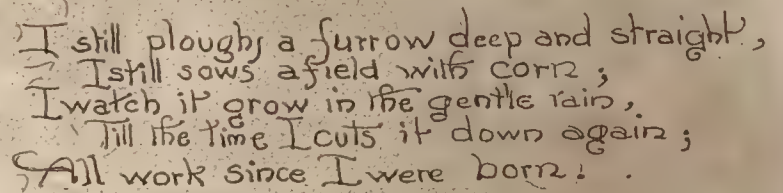 I still ploughs a furrow deep and straight,
I still sows a field with corn;
I watch it grow in the gentle rain,
Till the time I cuts it down again;
All work since I were born! .